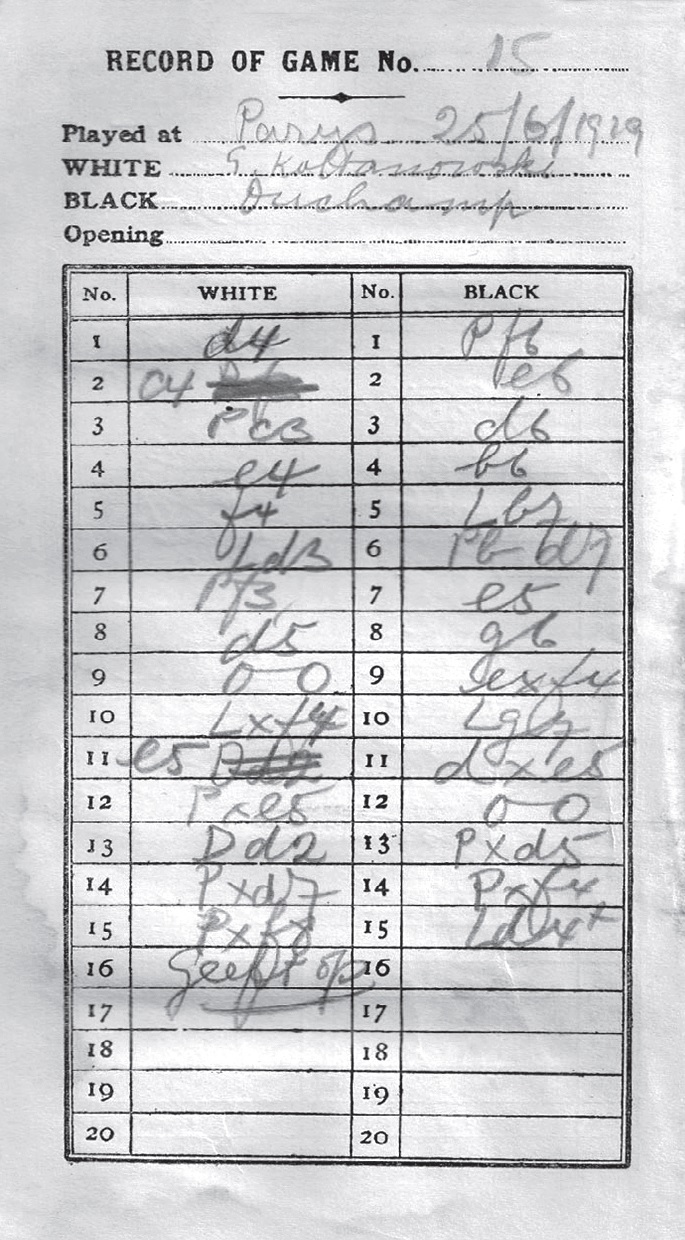 RECORD OF GAME No. 15
Played at Parys 25/6/1929
WHITE G. Koltanowski
BLACK Duchamp
Opening
No. WHITE No. BLACK
1 d4 1 Pf6
2 c4 2 e6
3 Pc3 3 d6
4 e4 4 b6
5 f4 5 Lb7
6 Ld3 6 Pb-d7
7 Pf3 7 e5
8 d5 8 g6
9 0-0 9 exf4
10 Lxf4 10 Lg7
11 e5 Dd2 11 dxe5
12 Pxe5 12 0-0
13 Dd2 13 Pxd5
14 Pxd7 14 Pxf4
15 Pxf8 15 Ld4+
16 Geeft op 16
17 17
18 18
19 19
20 20